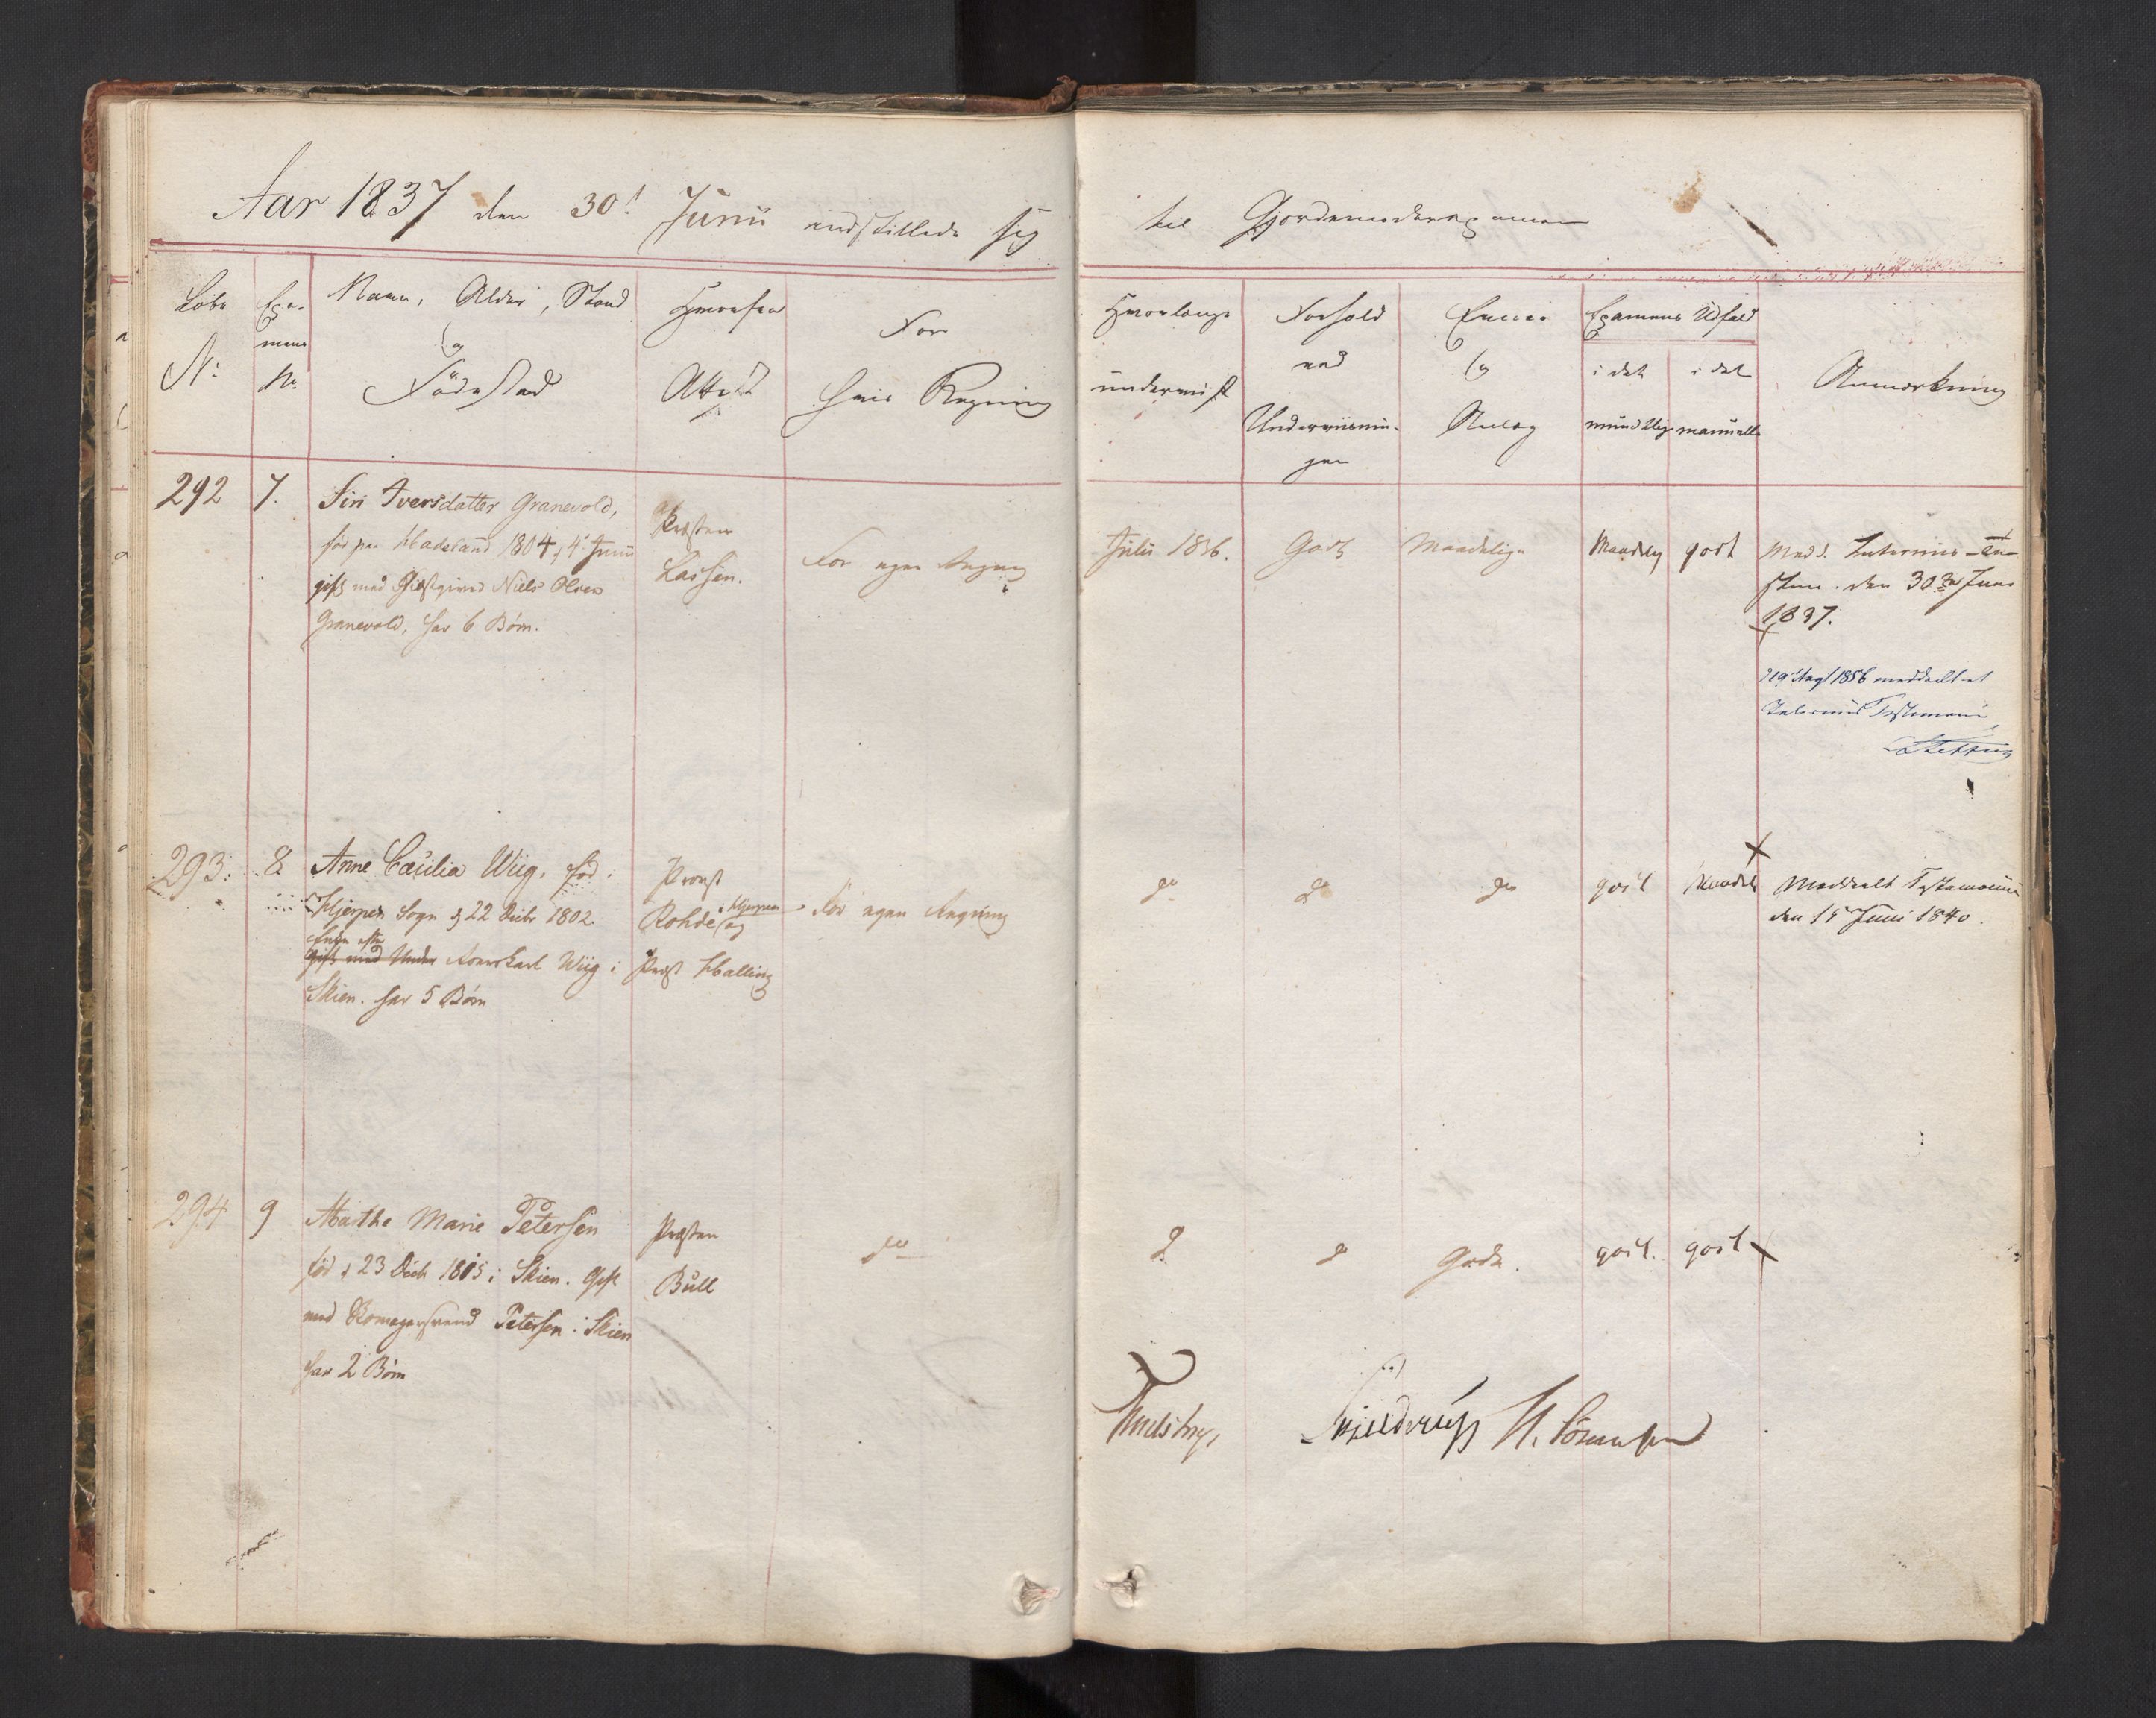 Aar 1837 den 30t Junii indstillede sig til Gjordemoderexamen
Løbe No
Exa-
mens
No
Navn, Alder, Stand
og
Födested
Hvorfra
Attest
For
hvis Regning
Hvorlænge
undervist
Forhold
ved
Underviisnin-
gen
Evner
og
Anlæg
Examens Udfald
i det
mundtlige
i det
manuelle
Anmærkning
292 7. Siri Iversdatter Granevold,
fød paa Hadeland 1804, 4 Junii
gift med Giæstgiver Niels Olsen
Granevold, har 6 Børn.
Præsten
Lassen.
For egen Regning
Julii 1836.
Godt
Maadelige
Maadelig
godt
Medd. Interims-Te-
stim. den 30te Juni
1837.
19 Aug 1856 meddeelt et
Interims Testimoni
293. 8 Anne Cæcilia Wiig, fød i
Hjerpen Sogn d 22 Decbr 1802
Enke efter
gift med Under Toverskarl Wiig i
Skien. har 5 Børn
Provst
Rohde i Hjerpen
og
Præst Halling
For egen Regning
do
do
do
godt
Maadel
Meddeelt Testamonium
den 15 Juni 1840.
294 9 Marthe Marie Petersen
fød d 23 Decb 1805 i Skien. Gift
med Skomagersvend Petersen i Skien
har 2 Børn
Præsten
Bull
do
do
do
Gode.
godt.
godt
Thulstrup,